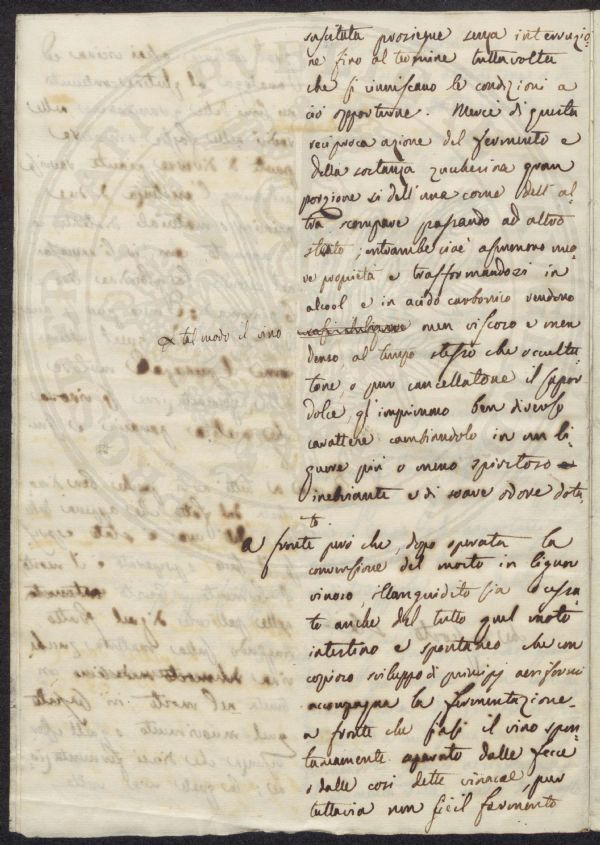 suscitata prosiegue senza interruzio-
ne fino al termine tuttavolta
che si riuniscano le condizioni a
ciò opportune. Mercè di questa
reciproca azione del fermento e
della sostanza zuccherina gran
porzione sì dell'una come dell'al-
tra scompare passando ad altro
stato; entrambe cioè assumono nuo-
ve proprietà e trasformandosi in
alcool e in acido carbonico rendono
tal modo il vino men viscoso e men
denso, al tempo stesso che occulta-
tone, o pur cancellatone il sapor
dolce, gl'imprimono ben diverso
carattere cambiandolo in un li-
quore più o meno spiritoso
inebriante e di soave odore dota-
to.
A fronte però che, dopo operata la
conversione del mosto in liquor
vinoso, illanguidito sia o cessa-
to anche del tutto quel moto
intestino e spontaneo che con
copioso sviluppo di principj aeriformi
accompagna la fermentazione
a fronte che siasi il vino spon-
taneamente separato dalle fecce
e dalle così dette vinacce, pur
tuttavia non è il fermento